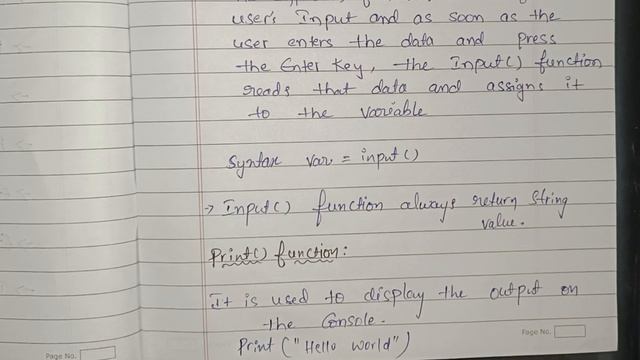 user's Input and as soon as the
user enters the data and press
the Enter Key, the Input() function
reads that data and assigns it
to the variable
Syntax var = input()
→ Input() function always return String
value.
Print() function:
It is used to display the output on
the Console.
Print ("Hello world")
Page No.
Page No.